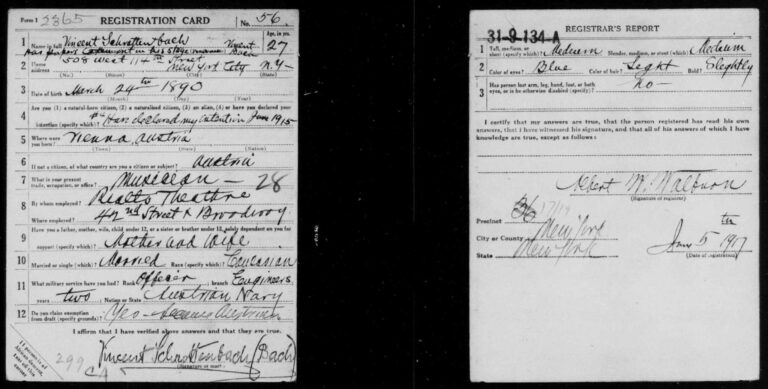 Form 1 3365 REGISTRATION CARD No. 56
1 Name in full Vincent Schrottenbach Age, in yrs. 27
in his stage name Vincent Bach
2 Home address 508 West 114th Street New York City N.Y.
3 Date of birth March 24th 1890
4 Are you (1) a natural-born citizen, (2) a naturalized citizen, (3) an alien, (4) or have you declared your
intention (specify which)? Have declared my intention June 1915
5 Where were you born? Vienna Austria
(Town) (State) (Nation)
6 If not a citizen, of what country are you a citizen or subject? Austria
7 What is your present trade, occupation, or office? Musician — 28
8 By whom employed? Rialto Theathre
Where employed? 42nd Street & Broadway
9 Have you a father, mother, wife, child under 12, or a sister or brother under 12, solely dependent on you for
support (specify which)? Mother and Wife
10 Married or single (which)? Married Race (specify which)? Caucasian
11 What military service have you had? Rank Officer ; branch Engineers
years two ; Nation or State Austrian Navy
12 Do you claim exemption from draft (specify grounds)? Yes
I affirm that I have verified above answers and that they are true.
299
CA
Vincent Schrottenbach (Bach)
31-9-134-A
REGISTRAR'S REPORT
1 Tall, medium, or short (specify which)? Medium Slender, medium, or stout (which)? Medium
2 Color of eyes? Blue Color of hair? Light Bald? Slightly
3 Has person lost arm, leg, hand, foot, or both eyes, or is he otherwise disabled (specify)? No —
I certify that my answers are true, that the person registered has read his own
answers, that I have witnessed his signature, and that all of his answers of which I have
knowledge are true, except as follows:
Albert W. Walburn
(Signature of registrar)
Precinct 36
City or County New York
State New York
June 5th 1917
(Date of registration)